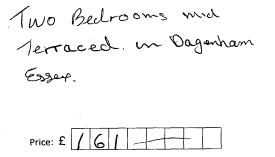 Two Bedrooms mid
Terraced. in Dagenham
Essex.
Price: £ 161